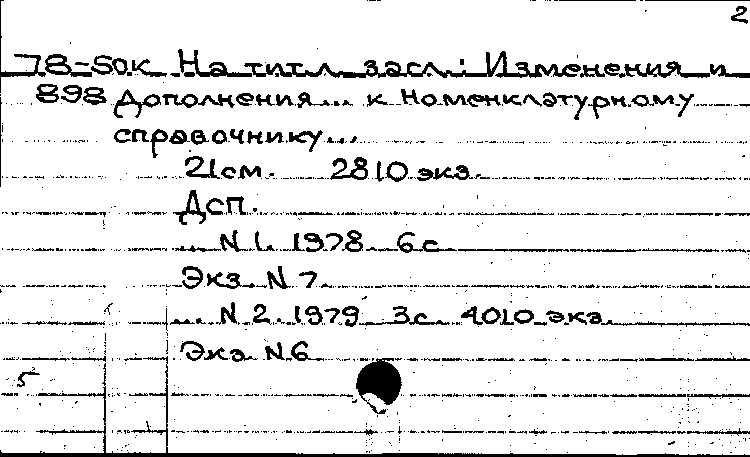 2
78-50к На титл. засл.: Изменения и
898 Дополнения... к Номенклатурному
справочнику...
21см. 2810 экз.
Дсп.
... N 1. 1978. 6 с.
Экз. N 7.
... N 2. 1979 3с. 4010 экз.
Экз. N 6
5